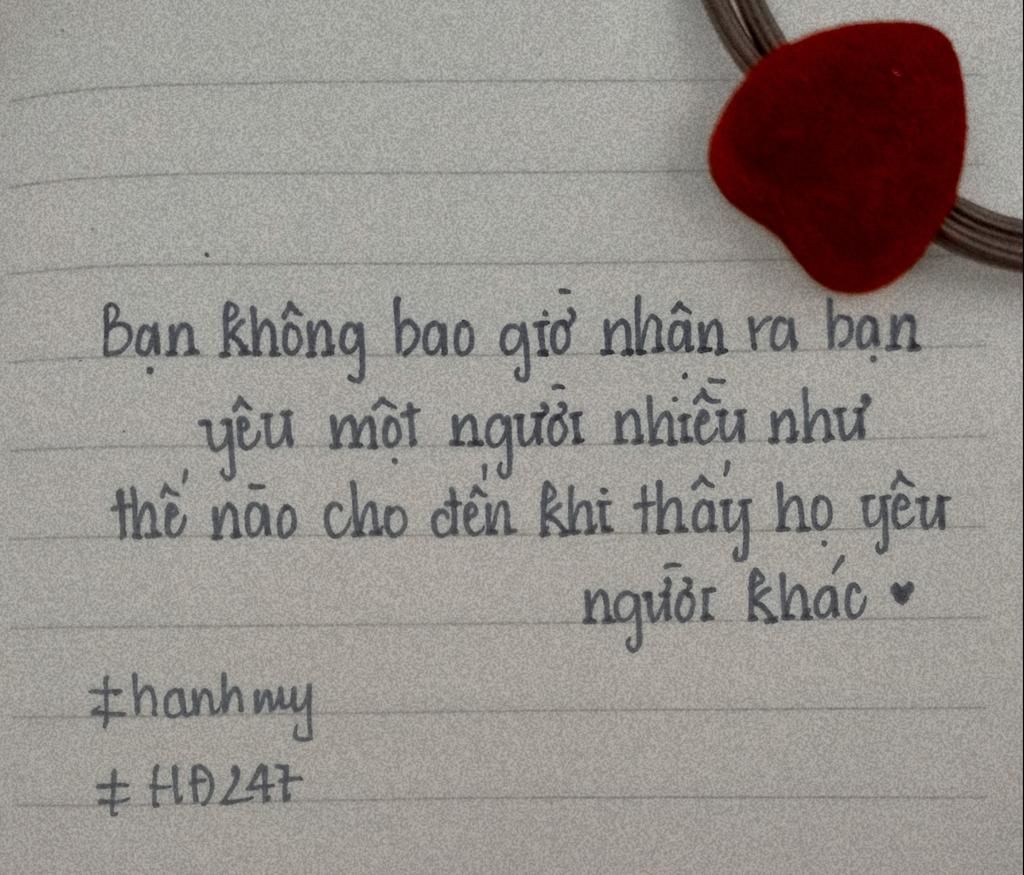 Bạn không bao giờ nhận ra bạn
yêu một người nhiều như
thế nào cho đến khi thấy họ yêu
người khác ♥
#hanhmy
#HĐ247